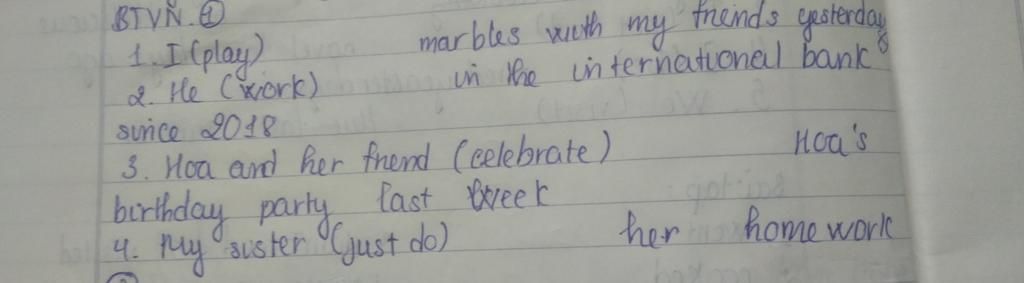 BTVN. ①
1. I (play) marbles with my friends yesterday
2. He (work) in the international bank
since 2018
3. Hoa and her friend (celebrate) Hoa's
birthday party last week
4. My sister (just do) her homework